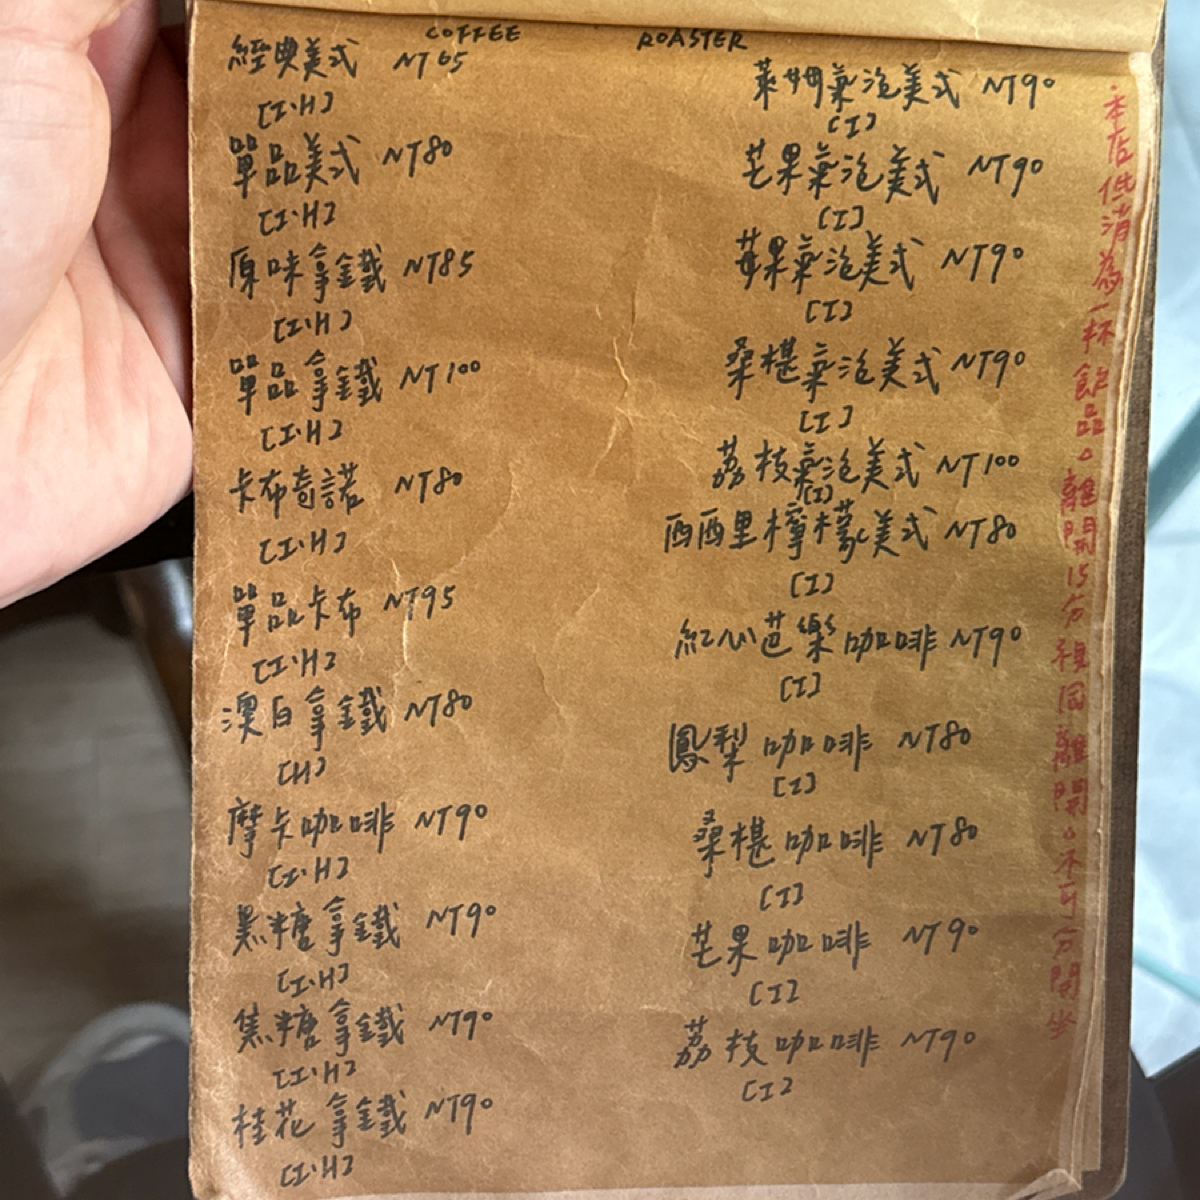 COFFEE ROASTER
經典美式 NT65
[I·H]
單品美式 NT80
[I·H]
原味拿鐵 NT85
[I·H]
單品拿鐵 NT100
[I·H]
卡布奇諾 NT80
[I·H]
單品卡布 NT95
[I·H]
澳白拿鐵 NT80
[H]
摩卡咖啡 NT90
[I·H]
黑糖拿鐵 NT90
[I·H]
焦糖拿鐵 NT90
[I·H]
桂花拿鐵 NT90
[I·H]
萊姆氣泡美式 NT90
[I]
芒果氣泡美式 NT90
[I]
苹果氣泡美式 NT90
[I]
桑椹氣泡美式 NT90
[I]
荔枝氣泡美式 NT100
[I]
西西里檸檬美式 NT80
[I]
紅心芭樂咖啡 NT90
[I]
鳳梨咖啡 NT80
[I]
桑椹咖啡 NT80
[I]
芒果咖啡 NT90
[I]
荔枝咖啡 NT90
[I]
·本店低消為一杯飲品。離開15分視同離開。不可分開坐